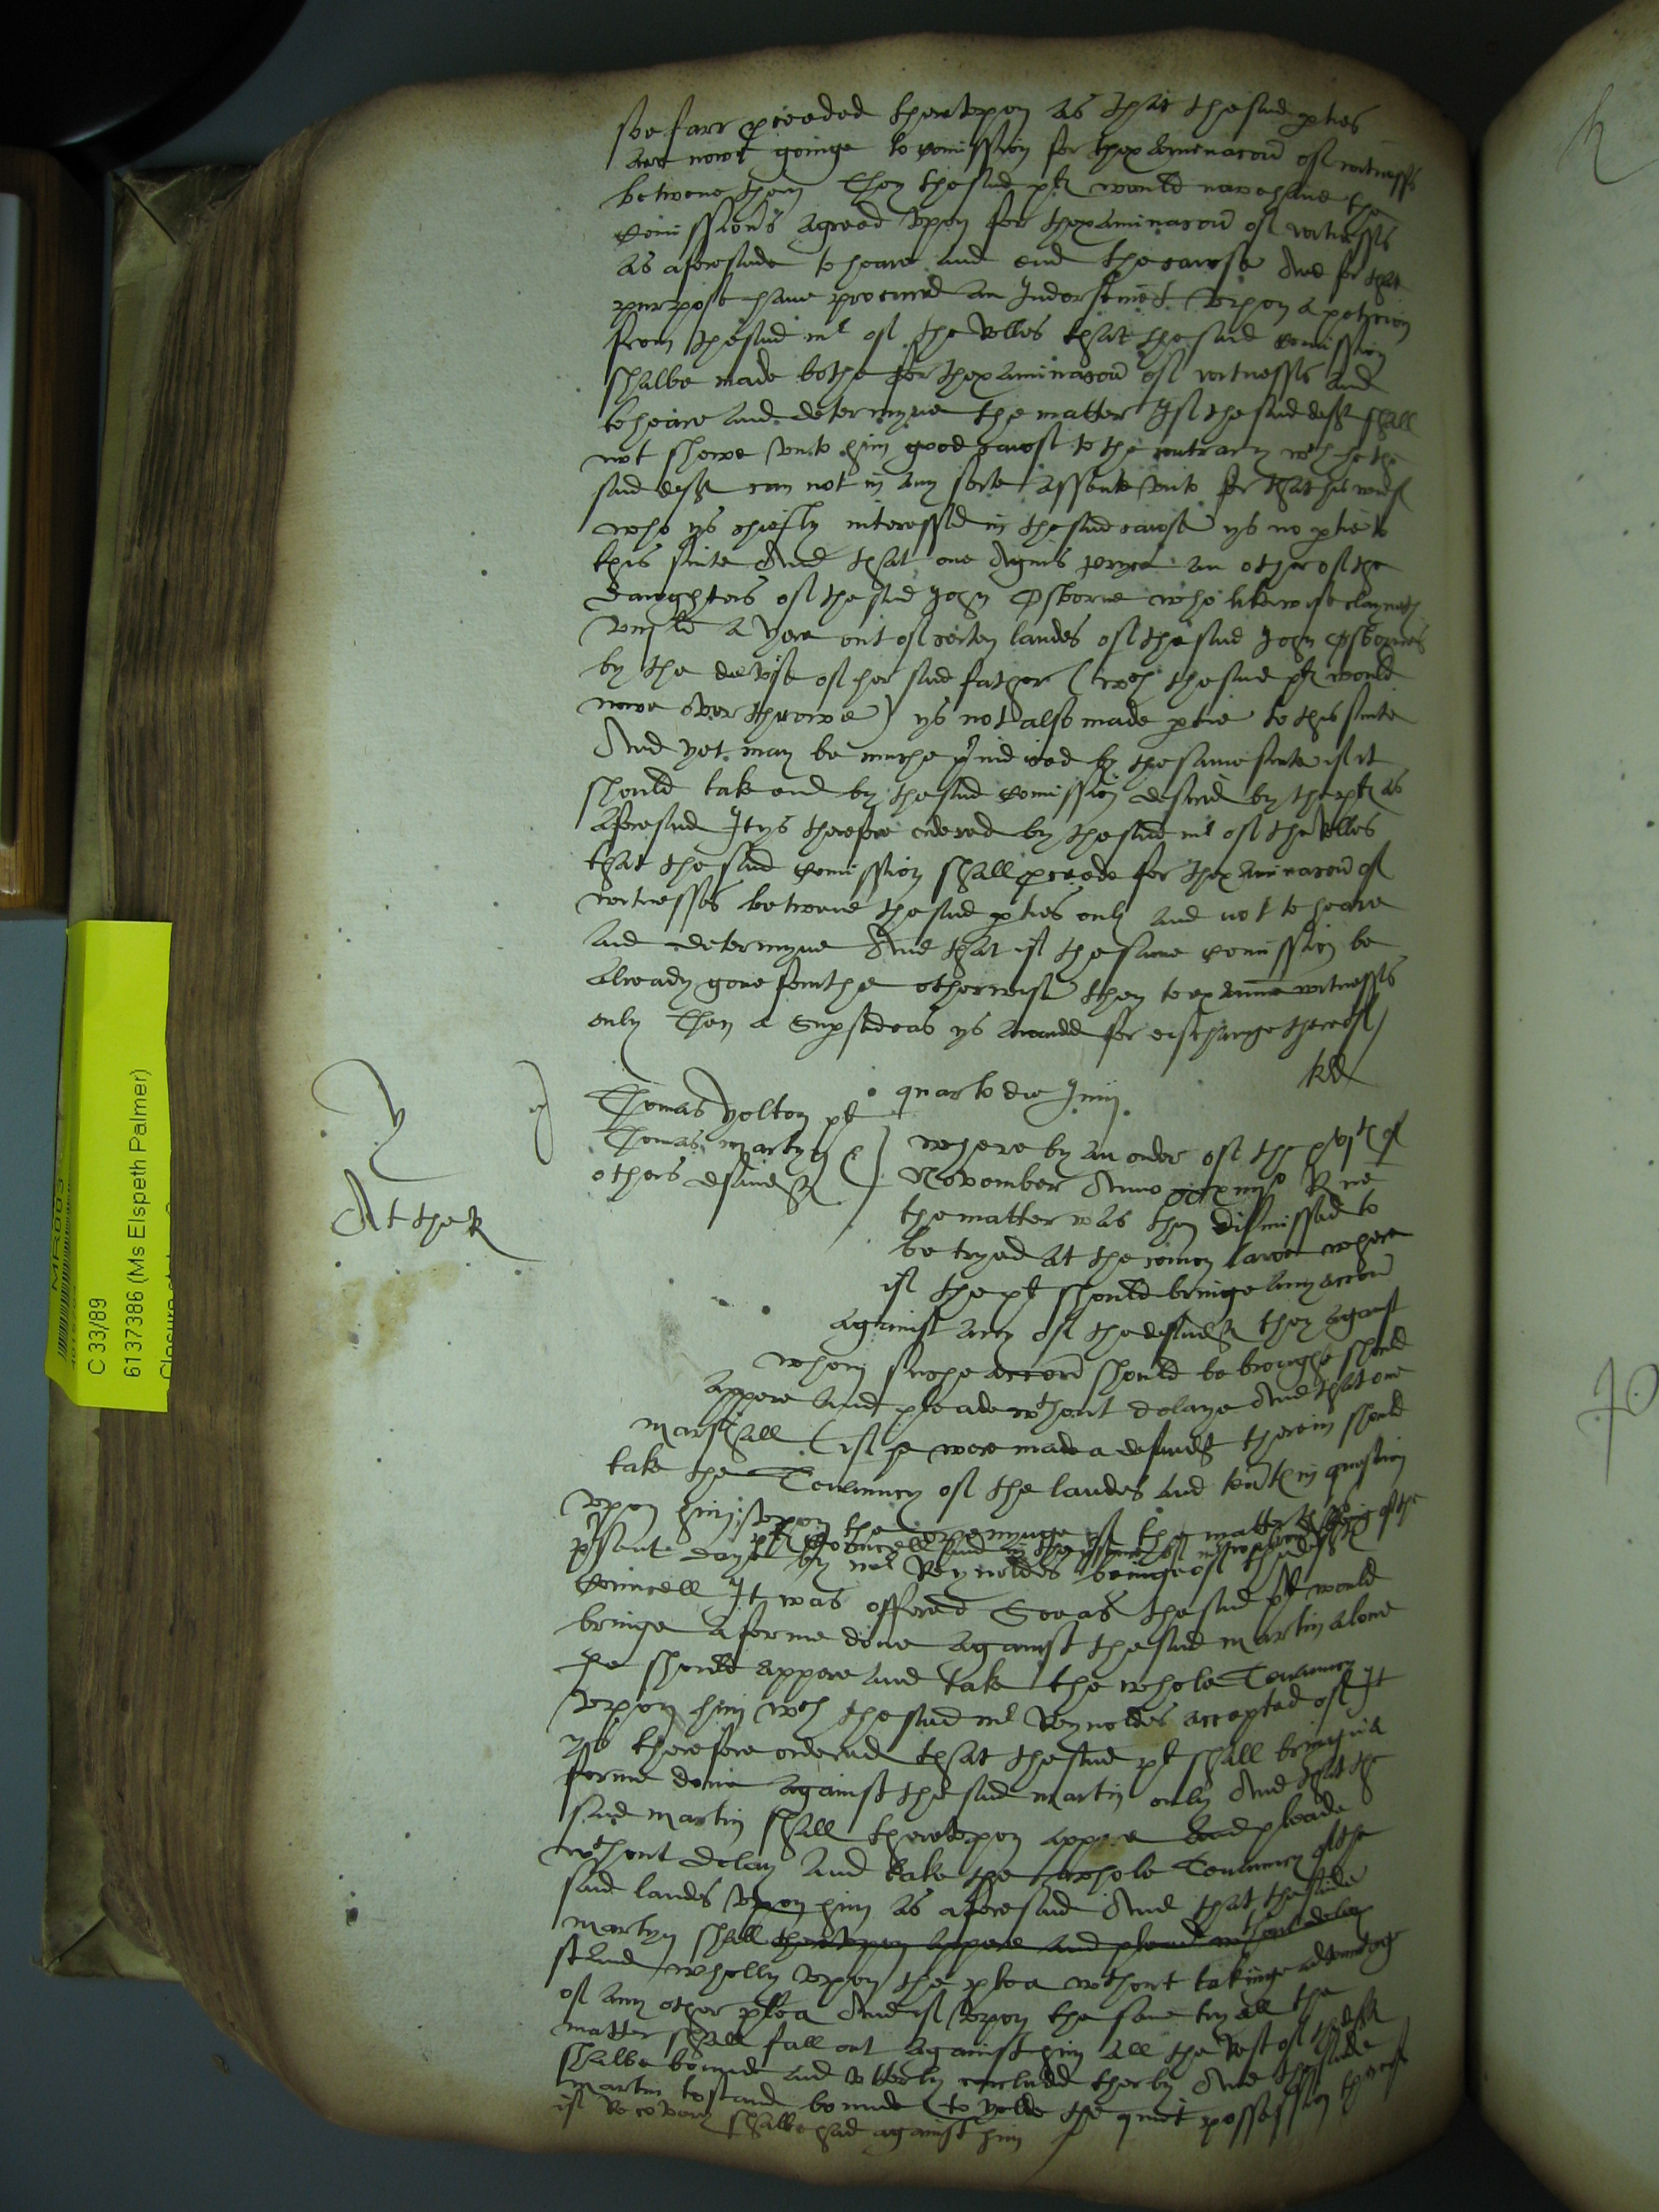 soe farr pceeded therevpon as that the said pties
are nowe goinge to comission for thexaminacon of witnesses
betwene them Then the said plt would nowe have the
comissioners agreed vpon for thexaminacon of witnesses
as aforesaide to heare and end the cause And for that
purpose have procured an Indorsemt vpon a peticion
from the said mr of the Rolles that the said comission
shalbe made bothe for thexaminacon of witnesses and
to heare and determyne the matter yf the said deft shall
not showe vnto him good cause to the contrary wch he the
said deft can not in any sorte assente vnto for that his wief
who ys chiefly interessed in the said cause ys no ptie to
this suite And that one Agnes an other of the
daughters of the said John Osborne who likewise claymeth
a yere out of certen landes of the said John Osbornes
by the devise of her said father (wch the said plt would
nowe overthrowe) ys not also made ptie to this suite
And yet may be muche piudiced by the same suite if it
should take end by the said comission desired by the plt as
aforesaid It ys therefore ordered by the said mr of the Rolles
that the said comission shall pceede for thexaminacon of
witnesses betwene the said pties only and not to heare
and determyne And that if the same comission be
already gone fourthe otherwise then to examine witnesses
only Then a Supsedeas ys awarded for discharge thereof
quarto die Junij
Thomas yolton plt
Thomas martyn &
others defendtes
Where by an order of the of
November Anno Rne
the matter was then dismissed to
be tryed at the comen lawe where
if the plt should bringe any accon
against any of the defendtes they against
whom suche accon should be broughte should
appere and pleade wthout delaye And that one
marshall (if he were made a defendt therein should
take the Tenancy of the landes and tentes in question
vpon him vpon the openynge of the matter this
psent daye by mr Reynoldes beinge of the
Councell It was offered Soe as the said plt would
bringe a forme done against the said martin alone
he should appere and take the whole Tenancy
vpon him wch the said mr Reynoldes accepted of It
ys therefore ordered that the said plt shall bringe a
forme done against the said martin only And that the
said martin shall therevpon appere and pleade
wthout delay and take the whole Tenancy of the
said landes vpon him as aforesaid And that the saide
martyn shall therevpon appere and pleade wthout delay
stand wholly vpon the plea wthout takinge advantage
of any other plea And if vpon the same tryall the
matter shall fall out against him all the rest of the deftes
shalbe bounde and vtterly concluded therby And the saide
martin to stand bounde to yelde the quiet possession thereof
if recovery shalbe had against him
At the R
C 33/89
6137386 (Ms Elspeth Palmer)